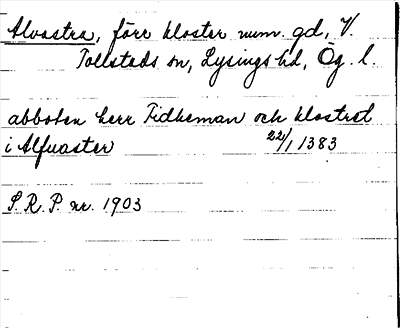 Alvastra, förr kloster num. gd, V.
Tollstads sn, Lysings hd, Ög. l.
abboten herr Tidheman och klostret
i Alfuaster 22/1 1383
S.R.P. nr. 1903